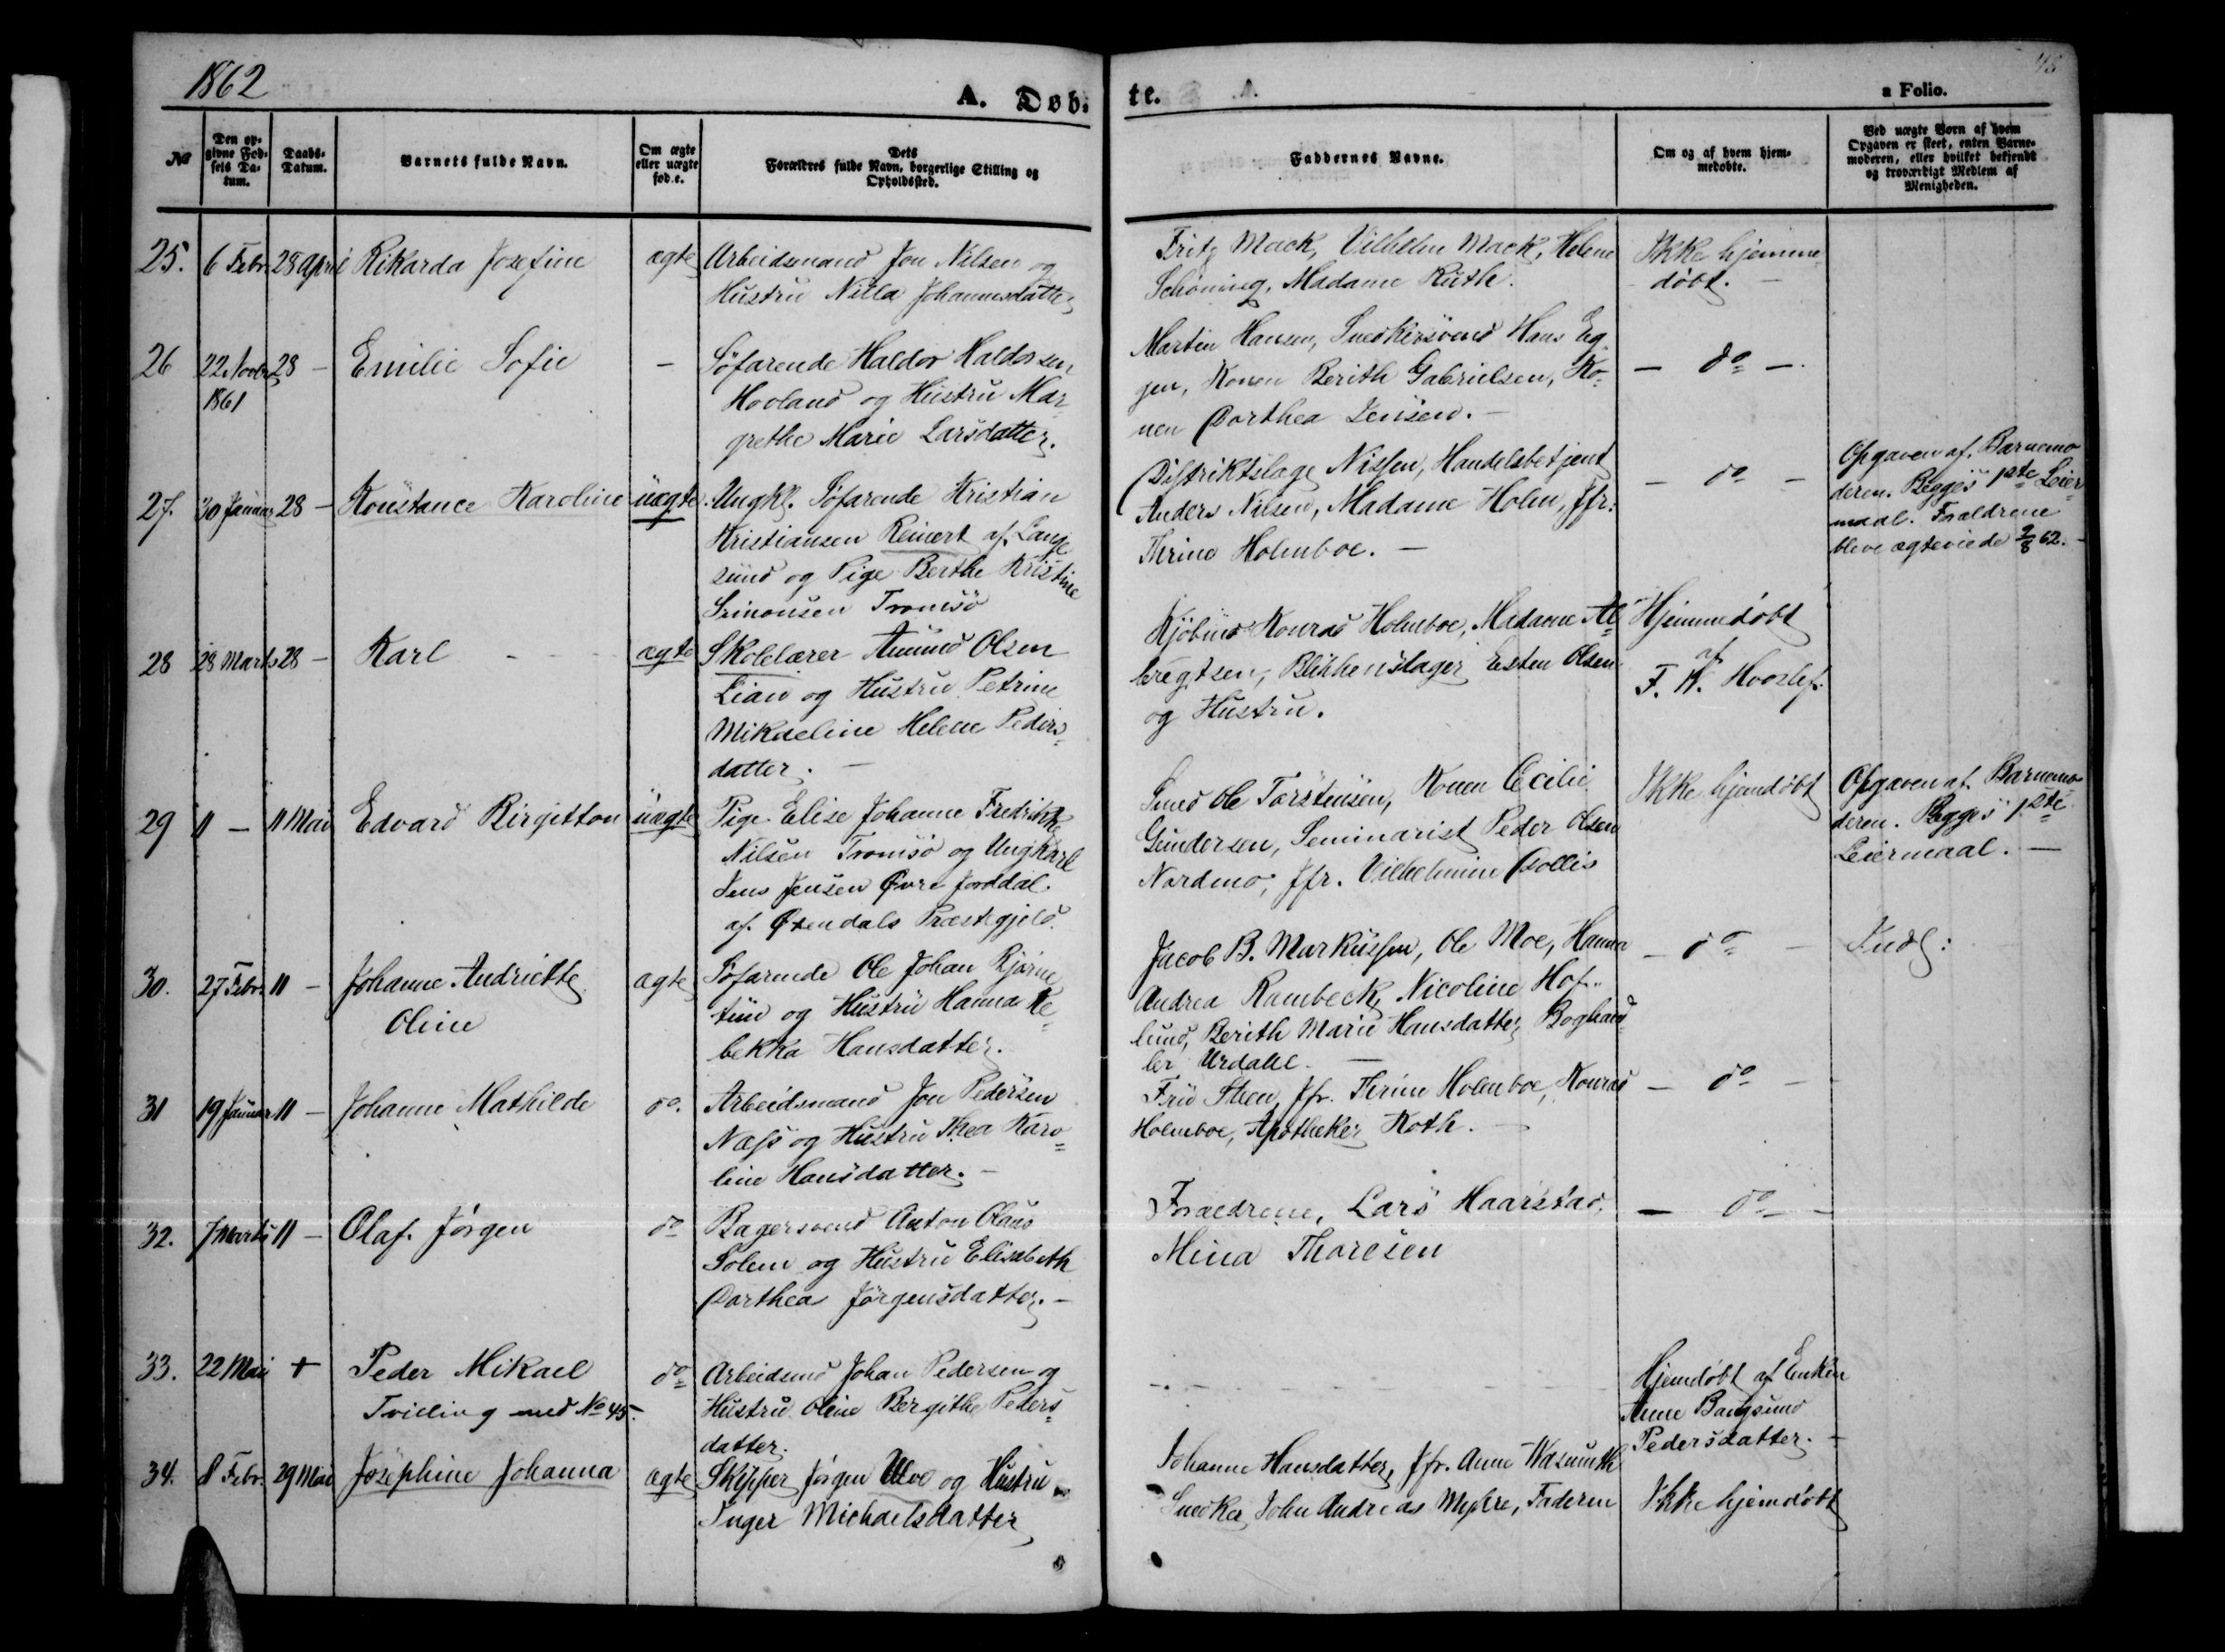 1862
A. Døb-
te.
a Folio.
No
Den op-
givne Fød-
sels Da-
tum.
Daabs-
Datum.
Barnets fulde Navn.
Om ægte
eller uægte
fød.e.
Dets
Forældres fulde Navn, borgerlige Stilling og
Opholdssted.
Faddernes Navne.
Om og af hvem hjem-
medøbte.
Ved uægte Børn af hvem
Opgaven er skeet, enten Barne-
moderen, eller hvilket bekjendt
og troværdigt Medlem af
Menigheden.
25. 6 Febr. 28 April Rikarda Josefine ægte Arbeidsmand Jon Nilsen og
Hustru Nilla Johannesdatter
Fritz Mack, Vilhelm Mack, Helene
Schøning, Madame Ruth.
Ikke hjemme
døbt. –
26 22 Novbr 28 – Emilie Sofie –
1861
Søfarende Haldor Haldorsen
Hovland og Hustru Mar-
grethe Marie Larsdatter.
Martin Hansen, Snedkersvend Hans Eg-
gen, Konen Berith Gabrielsen, Ko-
nen Dorthea Jensen. –
– do –
27. 30 Januar 28 – Konstance Karoline uægte Ungkl. Søfarende Kristian
Kristiansen Reinert af Lange
sund og Pige Berthe Kristine
Simonsen Tromsø
Distriktslæge Nissen, Handelsbetjent
Anders Nilsen, Madame Holm, Jfr.
Thrine Holmboe. –
– do –
Opgaven af Barnemo
deren. Begges 1ste Leier
maal. Forældrene
bleve ægteviede 2/8 62. –
28 28 Marts 28 – Karl ægte Skolelærer Amund Olsen
Lian og Hustru Petrine
Mikaeline Helene Peders-
datter. –
Kjøbmd Konrad Holmboe, Madame Al-
bregtsen, Blikkenslager Esten Olsen
og Hustru.
Hjemmedøbt
af
F. W. Hvoslef.
29 11 – 11 Mai Edvard Birgitton uægte Pige Elise Johanne Fredrikke
Nilsen Tromsø og Ungkarl
Jens Jensen Øvre Jorddal
af Præstegjeld.
Smed Ole Torstensen, Konen Cecilie
Gundersen, Seminarist Peder Olsen
Nordmo, Jfr. Vilhelmine Collis
Ikke hjemdøbt
Opgaven af Barnemo-
deren. Begges 1ste
Leiermaal. –
30. 27 Febr. 11 – Johanne Andriette
Oline
ægte Søfarende Ole Johan Bjørne
tun og Hustru Hanna Re-
bekka Hansdatter.
Jacob B. Markussen, Ole Moe, Hanna
Andrea Rambeck, Nicoline Hof-
lund, Berith Marie Hansdatter, Boghand
ler Urdahl. –
– do –
31 19 Januar 11 – Johanne Mathilde do. Arbeidsmand Jon Pedersen
Næss og Hustru Thea Karo-
line Hansdatter. –
Fru Steen, Jfr. Thrine Holmboe, Konrad
Holmboe, Apotheker Koth. –
– do –
32. 7 Marts 11 – Olaf Jørgen do Bagersvend Anton Olaus
Solem og Hustru Elisabeth
Dorthea Jørgensdatter. –
Forældrene, Lars Haarstad,
Mina Thoresen
– do –
33. 22 Mai + Peder Mikael do Arbeidsmd Johan Pedersen og
Tvilling med No 45.
Hustru Oline Bergithe Peders-
datter.
Hjemdøbt af Enken
Anne Bangsund
Pedersdatter. –
34. 8 Febr. 29 Mai Josephine Johanna ægte Skipper Jørgen Ulve og Hustru
Inger Michaelsdatter
Johanne Hansdatter, Jfr. Anne Wasmuth
Snedker John Andreas Myhre, Faderen
Ikke hjemdøbt